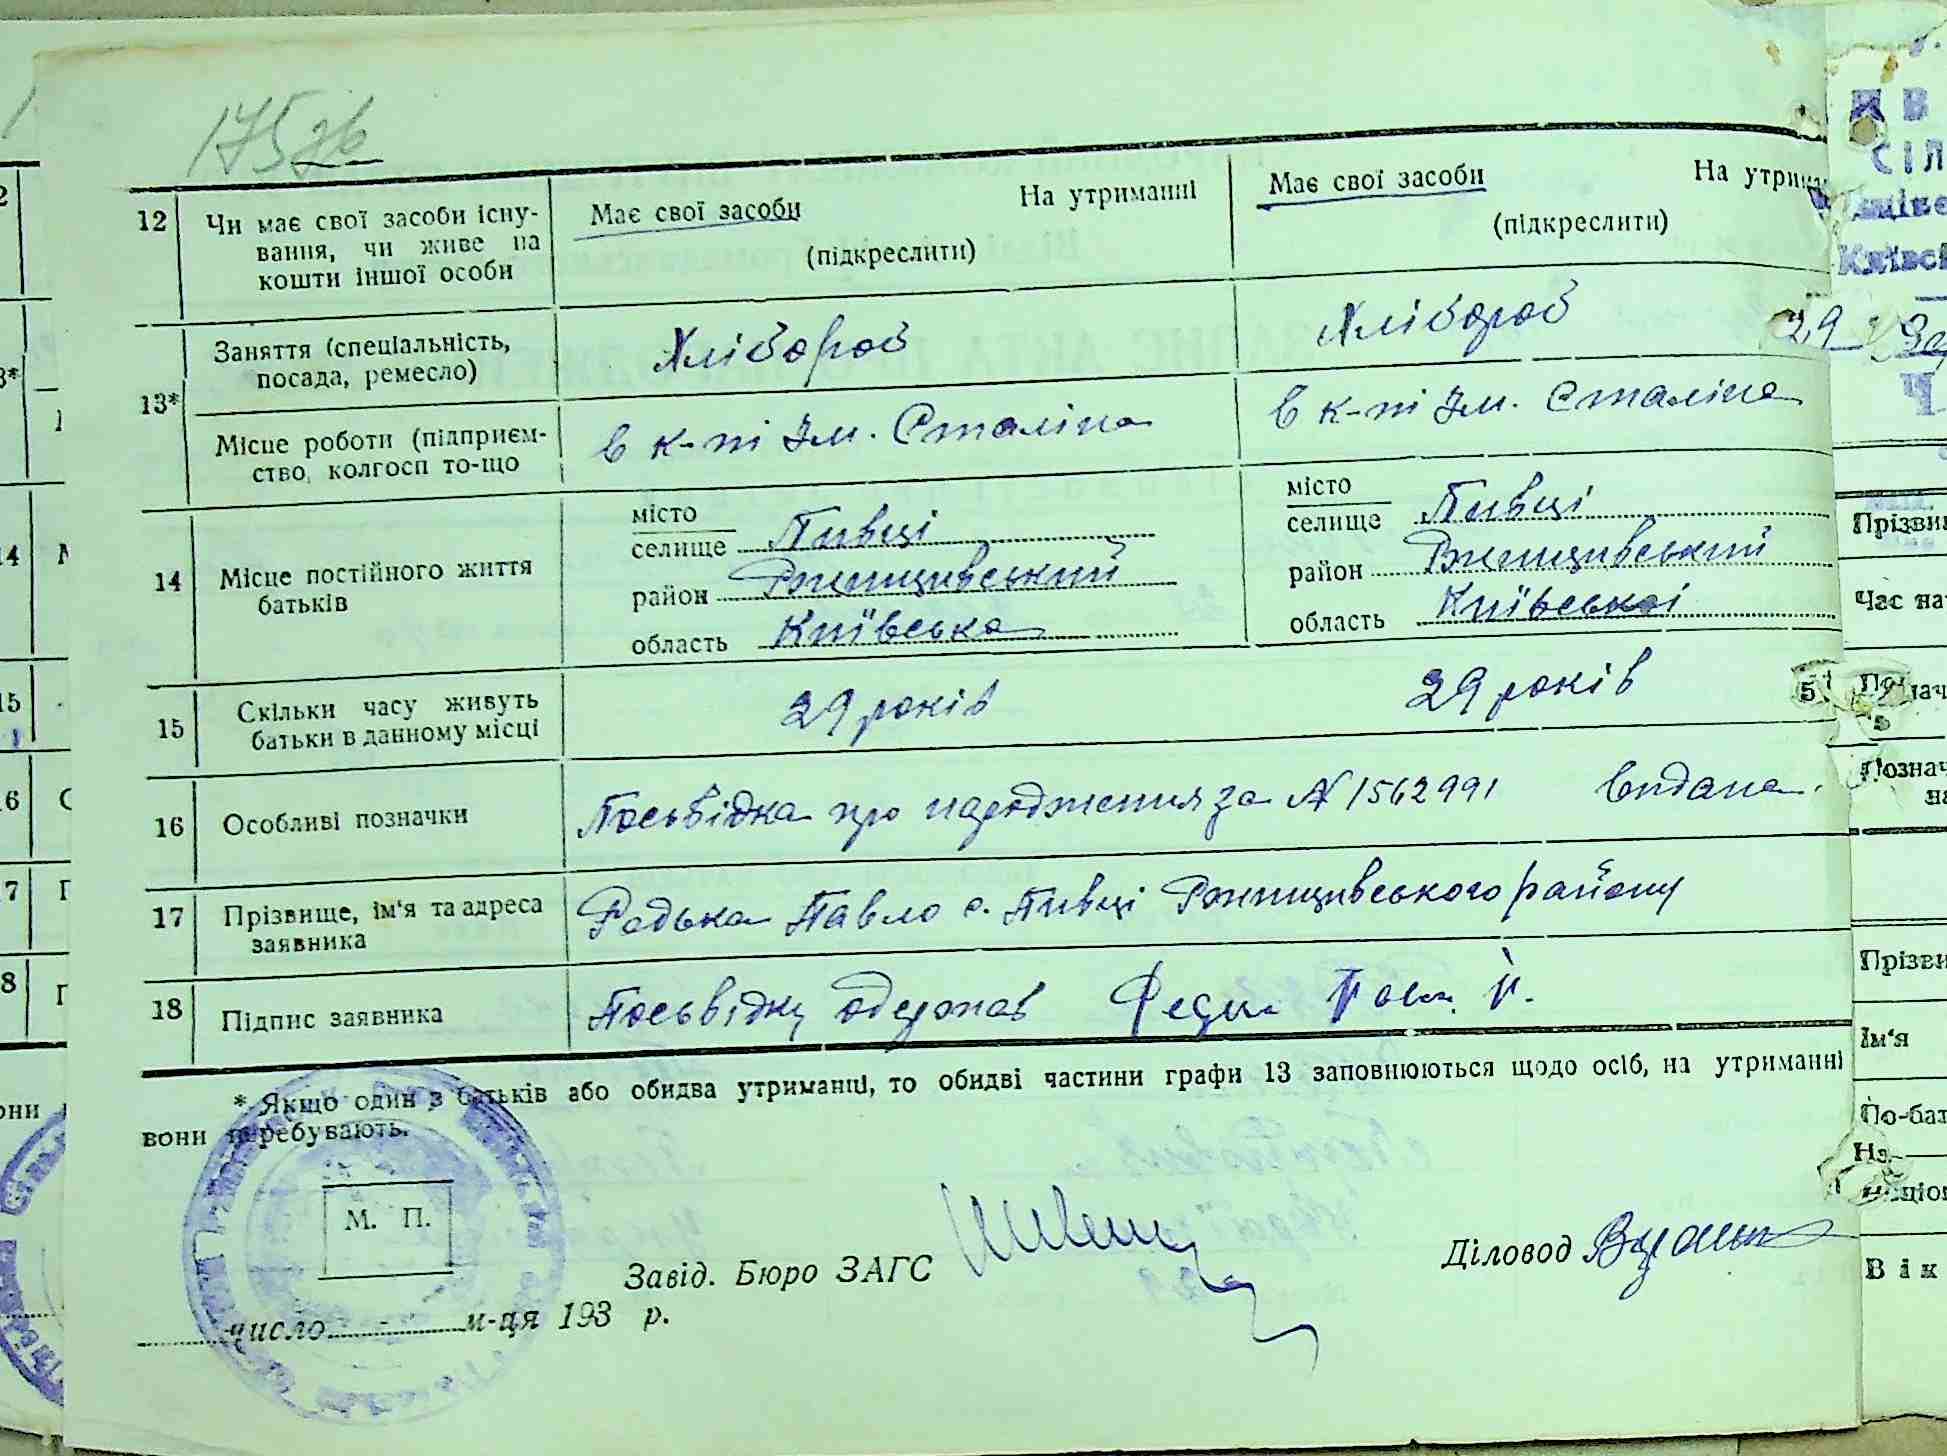 175 зв
12 Чи має свої засоби існу-
вання, чи живе на
кошти іншої особи
Має свої засоби На утриманні
(підкреслити)
Має свої засоби На утрим
(підкреслити)
13* Заняття (спеціальність,
посада, ремесло)
Хлібороб
Хлібороб
Місце роботи (підприєм-
ство, колгосп то-що
в к-пі Ім. Сталіна
в к-пі Ім. Сталіна
14 Місце постійного життя
батьків
місто
селище Пивці
район
область Київська
місто
селище Пивці
район
область Київської
15 Скільки часу живуть
батьки в данному місці
29 років
29 років
16 Особливі позначки
Посьвідка про народження за № 1562991 видана.
17 Прізвище, ім'я та адреса
заявника
Редька Павло с. Пивці району
18 Підпис заявника
Посьвідку одержав
* Якщо один з батьків або обидва утриманці, то обидві частини графи 13 заповнюються щодо осіб, на утриманні
вони перебувають.
М. П.
Завід. Бюро ЗАГС
Діловод
число м-ця 193 р.
СІЛ
29
Прізви
Час на
5
Познач
на
Прізви
Ім'я
По-бат
На
Націон
Вік